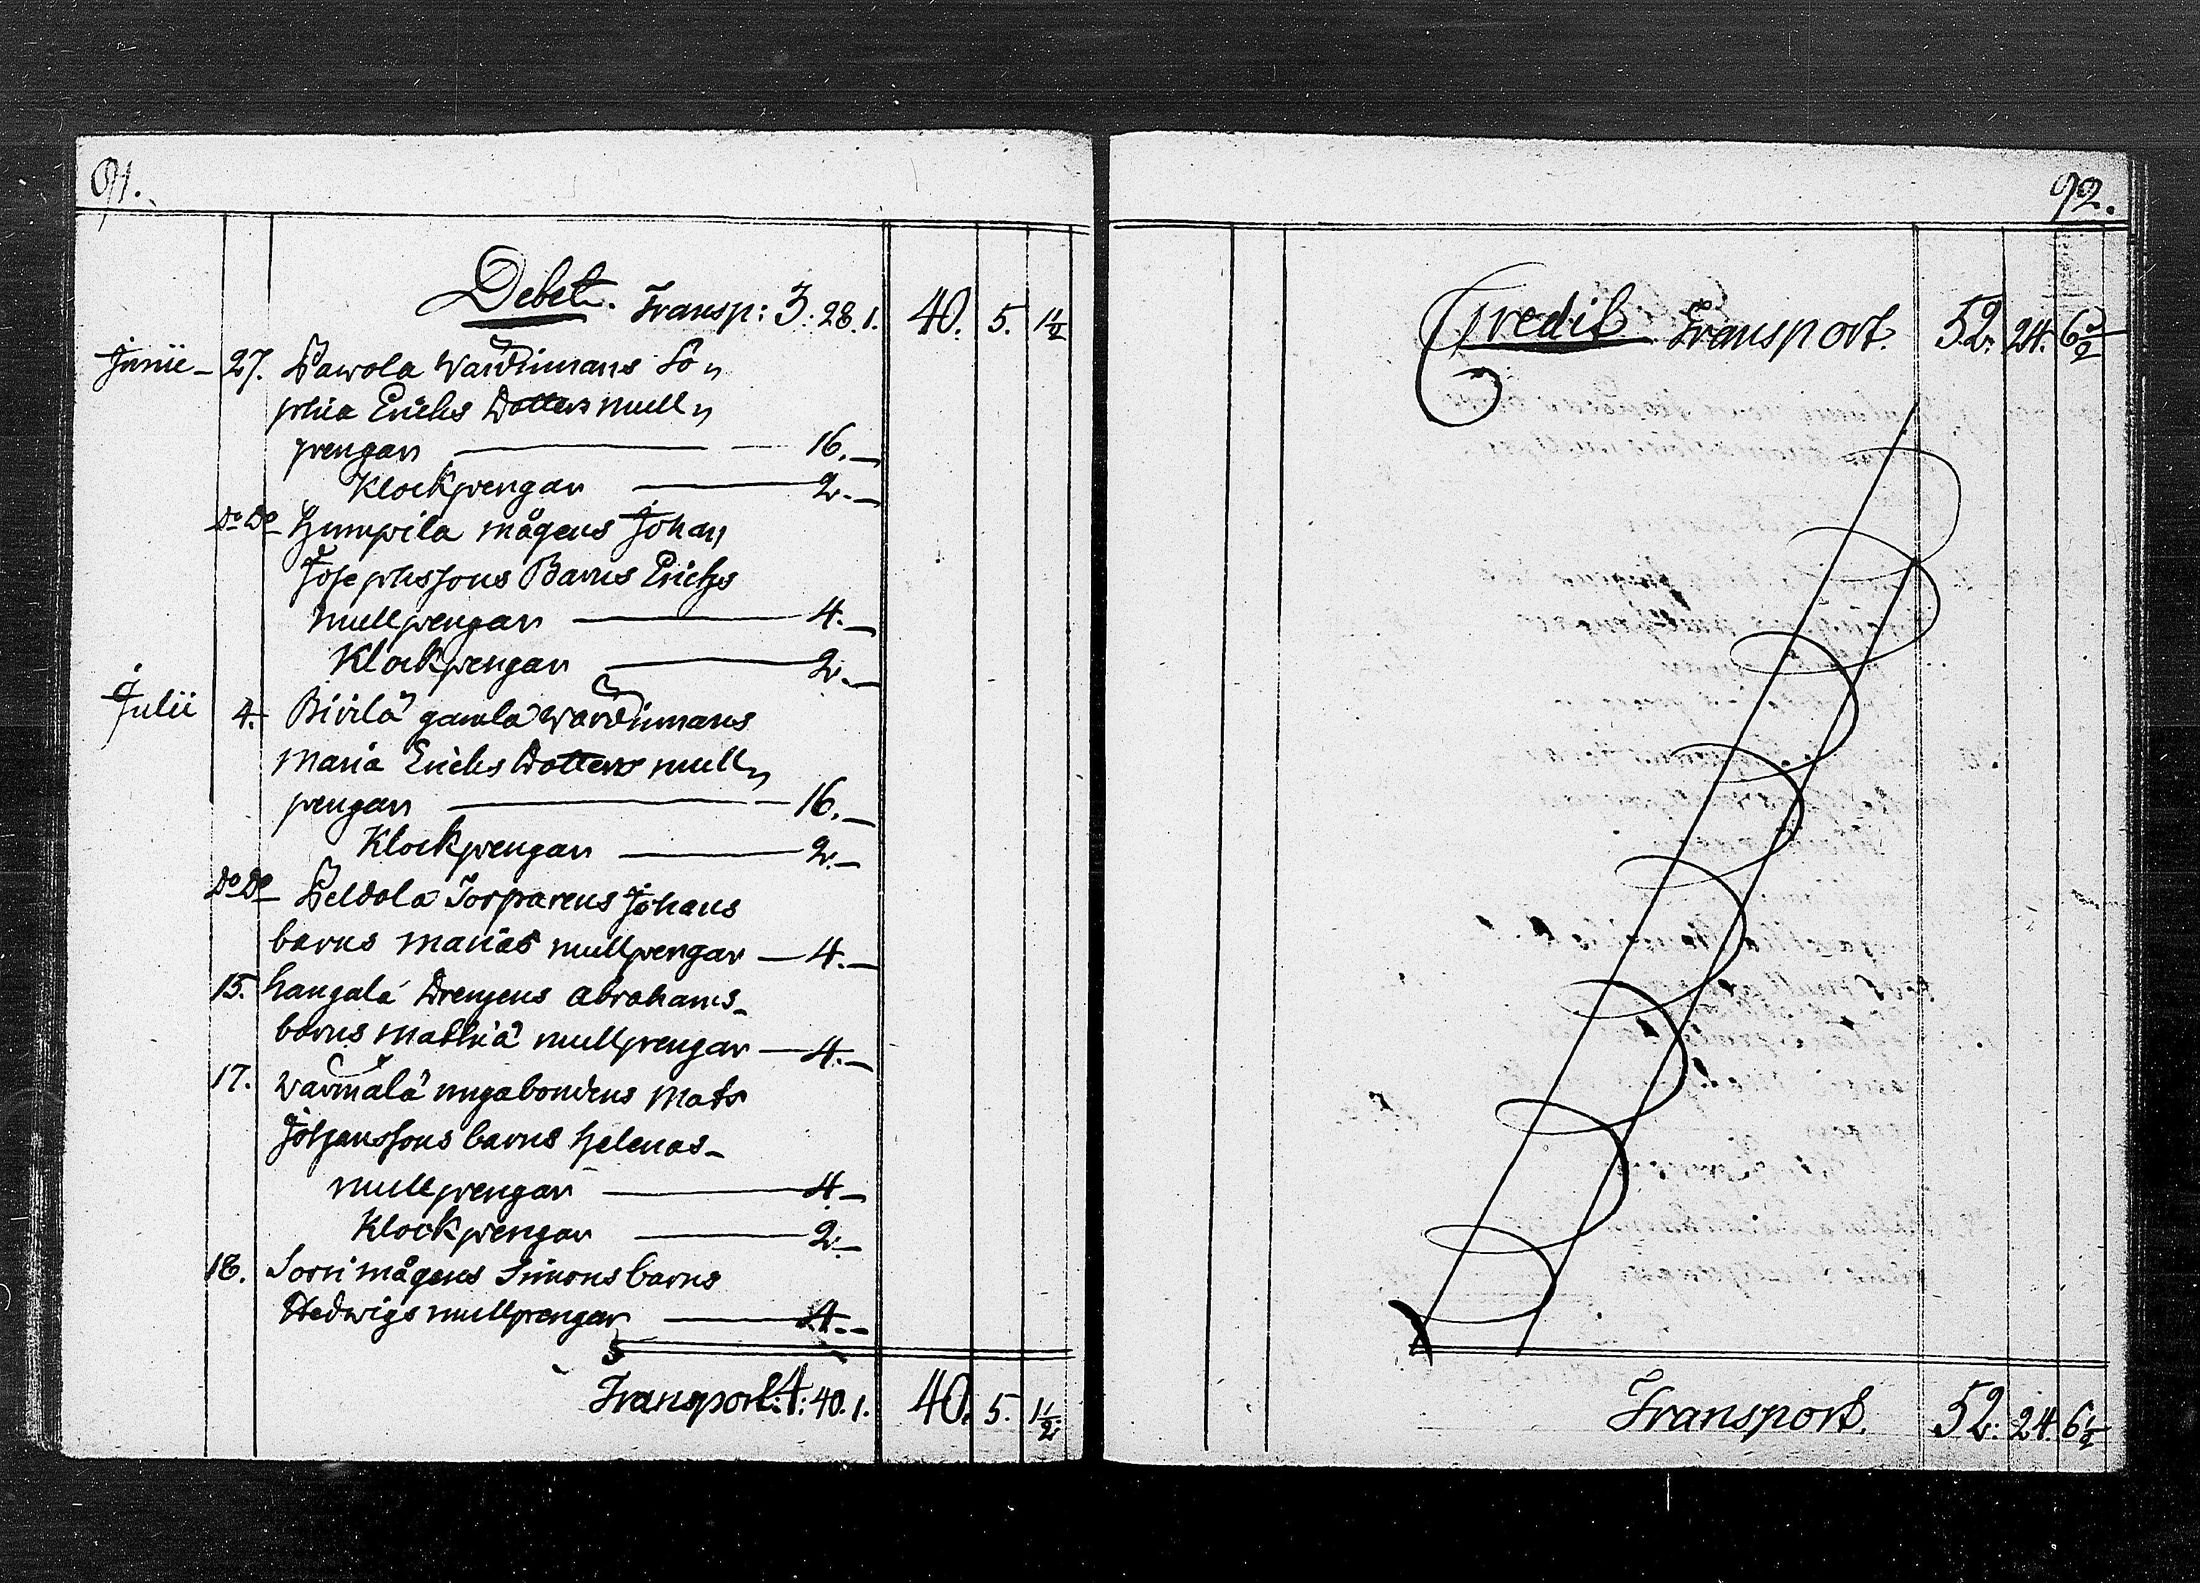 91.
Debet. Transp: 3. 28. 1. 40. 5. 1½
Junii - 27. Pawola Wardinmans So=
phia Erichs Dotters mull=
pengar 16. —
Klockpengar 2. —
Do Do Humpila mågens Johan
Josephssons Barns Erichs
mullpengar 4. —
Klockpengar 2. —
Julii 4. gamla Wardinmans
Maria Erichs Dotters mull=
pengar 16. —
Klockpengar 2. —
Do Do Peldola Torparens Johans
barns Marias mullpengar — 4. —
15. Kangala Drengens Abrahams
barns Mathiä mullpengar — 4. —
17. Warmala Mats
Johanssons barns Helenas
mullpengar 4. —
Klockpengar 2. —
18. Sorri mågens Simons barns
Hedwigs mullpengar 4. —
Transport. 4. 40. 1. 40. 5. 1½
92.
Credit Transport. 52. 24. 6½
Transport. 52. 24. 6½